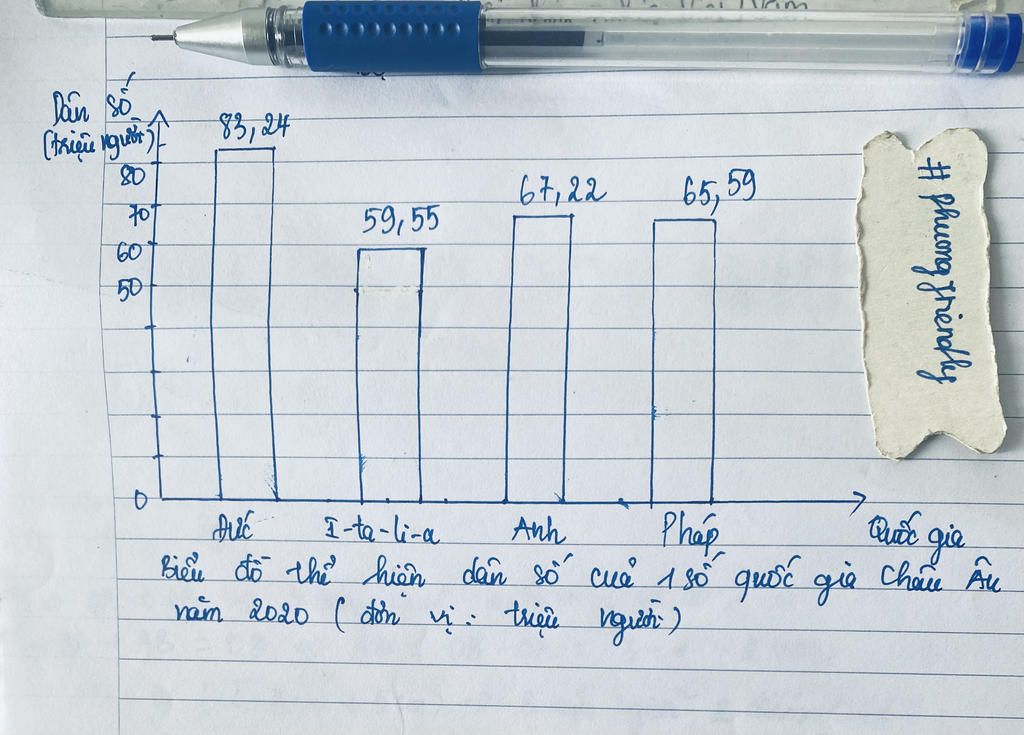 Dân số
(triệu người)
83,24
67,22
65,59
59,55
80
70
60
50
0
Đức I-ta-li-a Anh Pháp Quốc gia
Biểu đồ thể hiện dân số của 1 số quốc gia Châu Âu
năm 2020 (đơn vị: triệu người)
# phuongfriendly